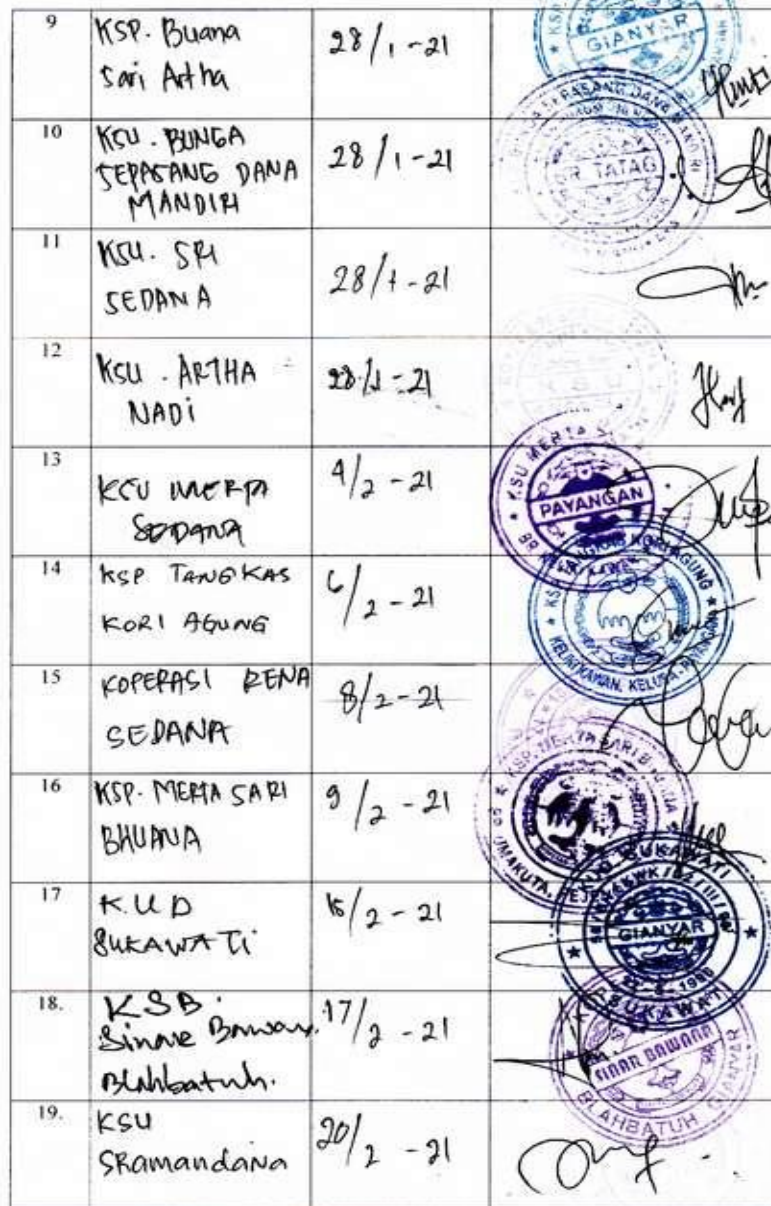 9
KSP. Buana
Sari Artha
28/1-21
GIANYAR
10
KSU. BUNGA
SEPASANG DANA
MANDIRI
28/1-21
SEPASANG DANA MANDIRI
BR. TATAG
11
KSU. SRI
SEDANA
28/1-21
12
KSU. ARTHA
NADI
28/1-21
13
KSU MERTA
SEDANA
4/2-21
KSU MERTA
PAYANGAN
14
KSP TANGKAS
KORI AGUNG
6/2-21
KORI AGUNG
15
KOPERASI RENA
SEDANA
8/2-21
16
KSP. MERTA SARI
BHUANA
9/2-21
KSP. MERTA SARI
17
K.U.D
SUKAWATI
15/2-21
SUKAWATI
GIANYAR
SUKAWATI
18.
KSB.
Blahbatuh.
17/2-21
SINAR BAWANA
BLAHBATUH GIANYAR
19.
KSU
SRamandana
20/2-21